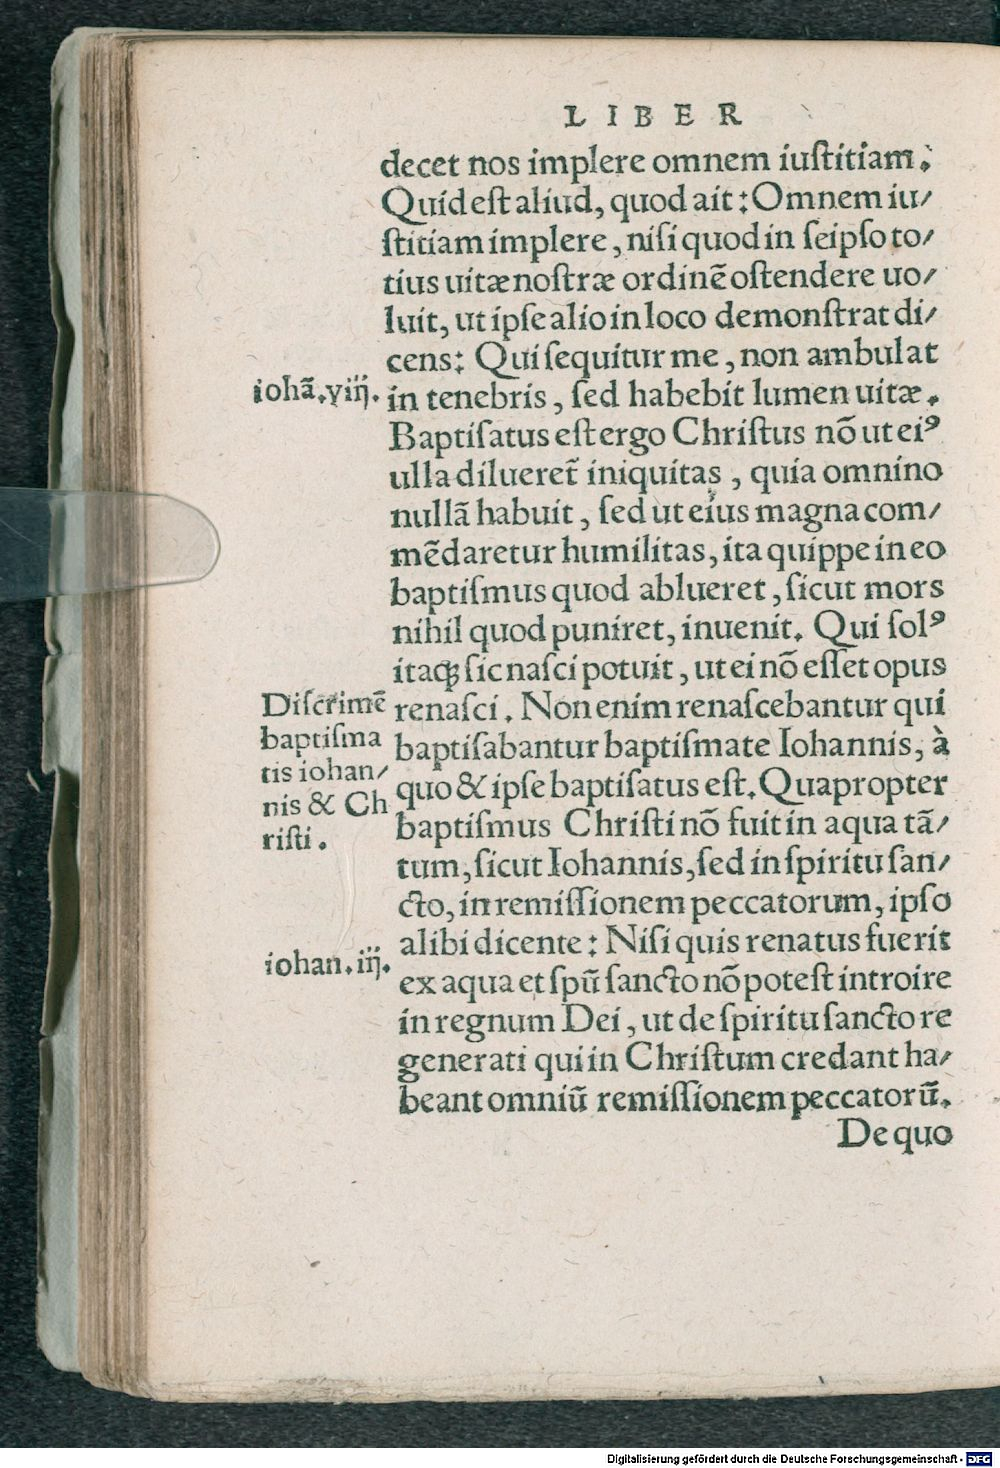 LIBER
decet nos implere omnem iuſtitiam.
Quid eſt aliud, quod ait: Omnem iu/
ſtitiam implere, niſi quod in ſeipſo to/
tius uitæ noſtræ ordinē oſtendere uo/
luit, ut ipſe alio in loco demonſtrat di/
cens: Qui ſequitur me, non ambulat
iohā. viij.
in tenebris, ſed habebit lumen uitæ.
Baptiſatus eſt ergo Chriſtus nō ut eiꝰ
ulla dilueret̄ iniquitas, quia omnino
nullā habuit, ſed ut eius magna com/
mēdaretur humilitas, ita quippe in eo
baptiſmus quod ablueret, ſicut mors
nihil quod puniret, inuenit. Qui ſolꝰ
itaqꝫ ſic naſci potuit, ut ei nō eſſet opus
Diſcrimē
baptiſma
tis iohan/
nis & Ch
riſti.
renaſci. Non enim renaſcebantur qui
baptiſabantur baptiſmate Iohannis, à
quo & ipſe baptiſatus eſt. Quapropter
baptiſmus Chriſti nō fuit in aqua tā/
tum, ſicut Iohannis, ſed in ſpiritu ſan/
cto, in remiſſionem peccatorum, ipſo
alibi dicente: Niſi quis renatus fuerit
iohan. iij.
ex aqua et ſpū ſancto nō poteſt introire
in regnum Dei, ut de ſpiritu ſancto re
generati qui in Chriſtum credant ha/
beant omniū remiſſionem peccatorū.
De quo
Digitalisierung gefördert durch die Deutsche Forschungsgemeinschaft - DFG